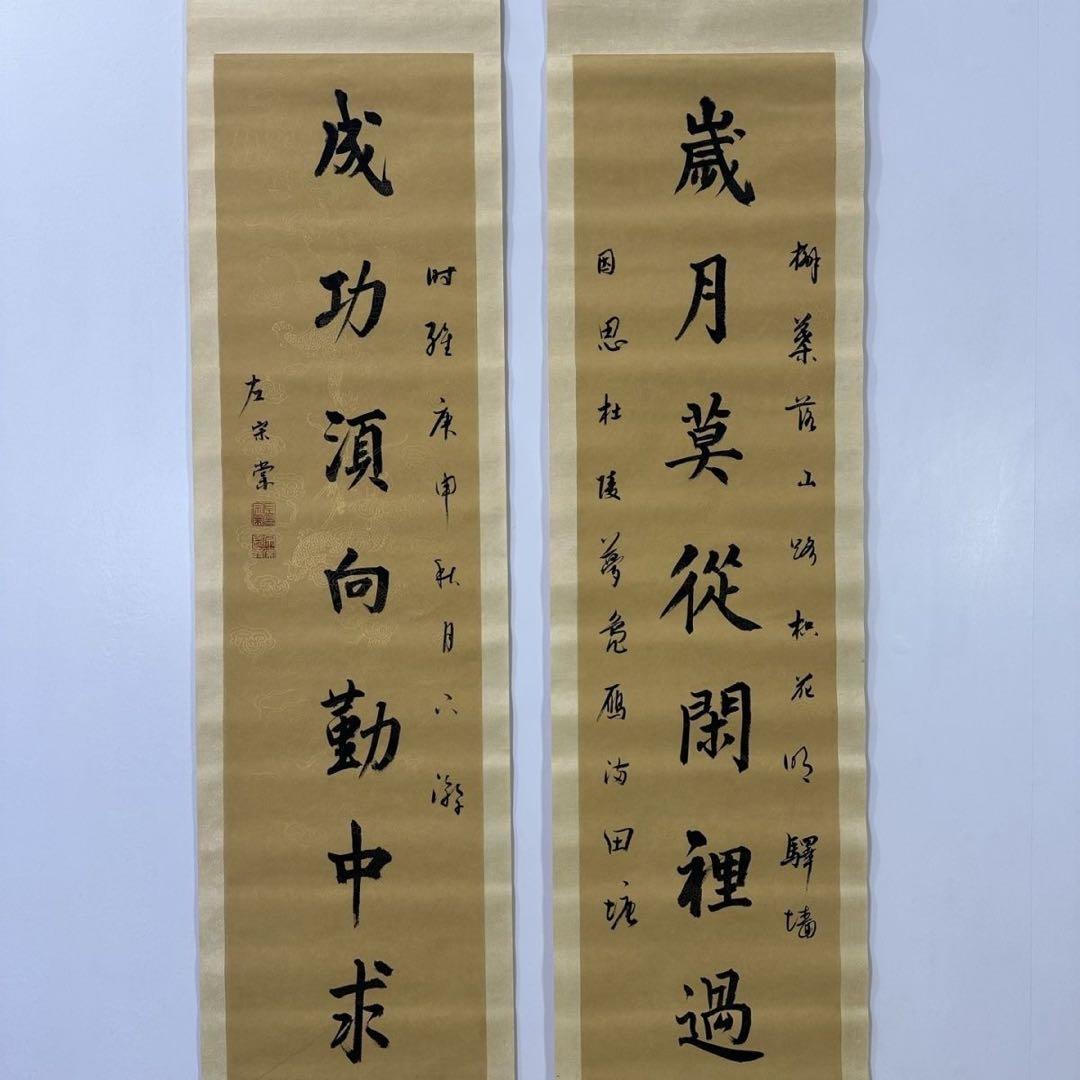 槲葉落山路枳花明驛墻
歲月莫從閑裡過
因思杜陵夢鳧雁满田塘
时維庚申秋月六澣
成功須向勤中求
左宗棠